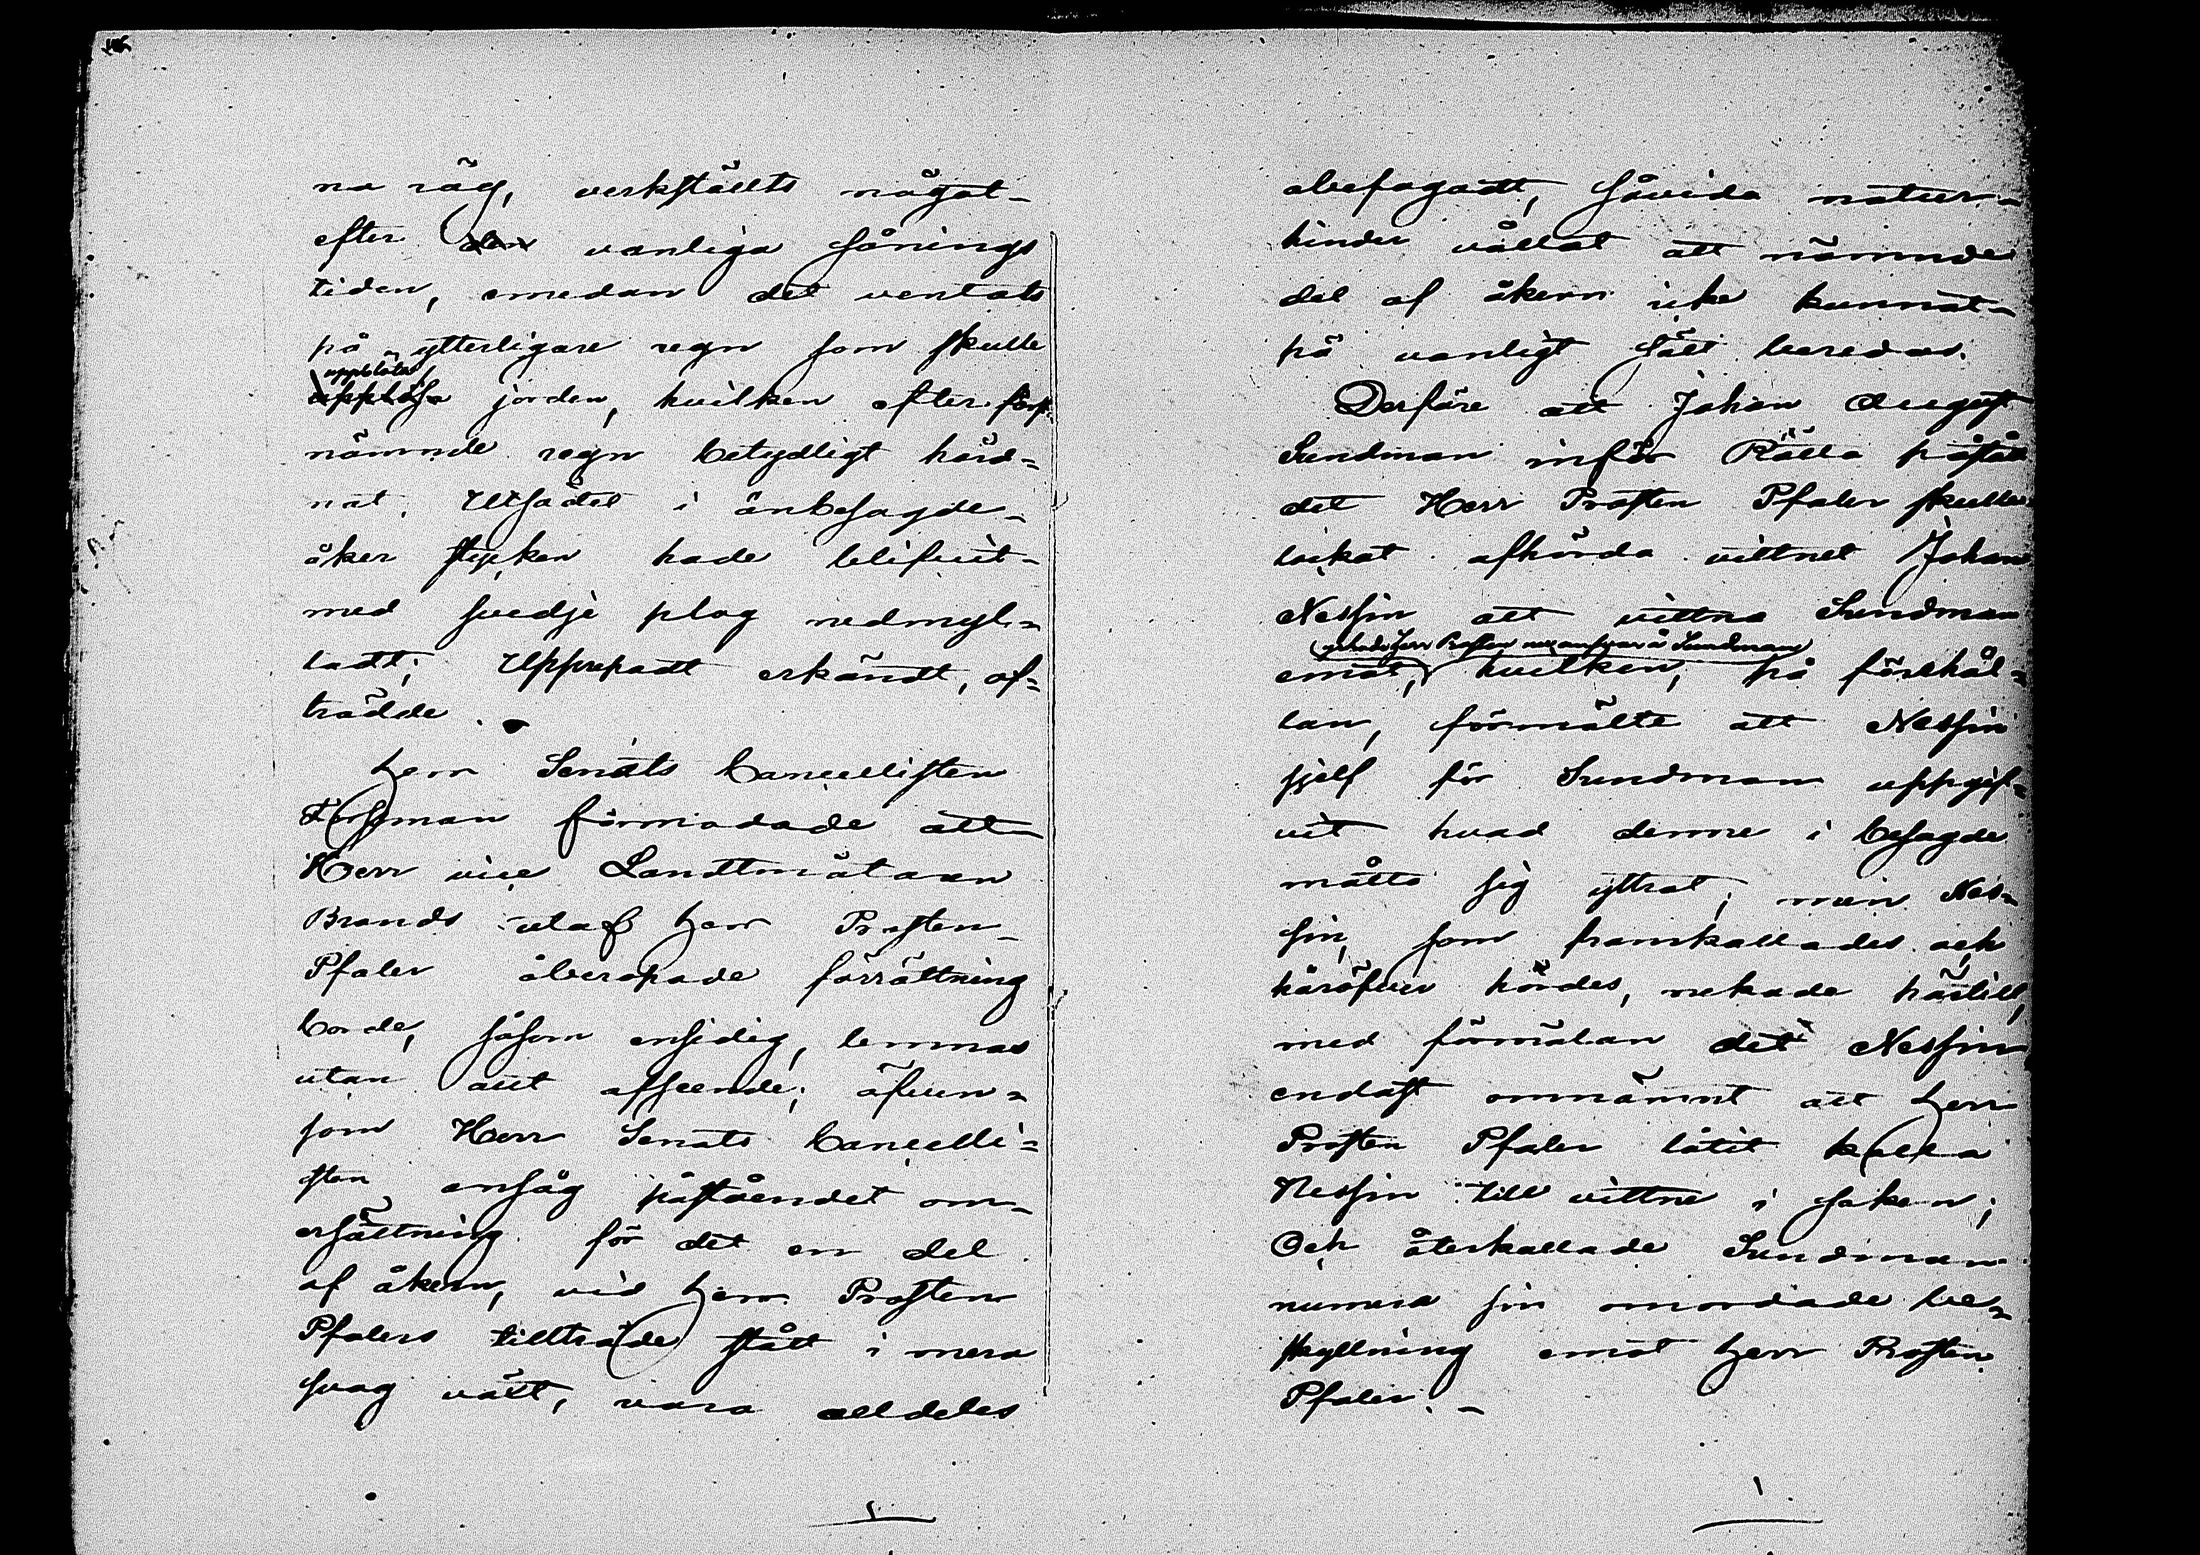 na råg, verkstälts något
efter den vanliga sånings
tiden, emedan det ventats
på ytterligare regn som skulle
uppblöta
upplösa jorden, hvilken efter först
nämnde regn betydligt hård-
nat. Utsädet i änbesagde
åker stycken hade blifvit
med svedje plog nedmyl-
ladt; Uppropadt erkändt, af-
trädde.
Herr Senats Cancellisten
Forsman förmodade att
Herr vice Landtmätaren
Brands utaf Herr Prosten
Pfaler åberopade förrättning
borde, såsom ensidig, lemnas
utan allt afseende; äfven-
som Herr Senats Cancelli-
sten ansåg påståendet om
ersättning för det en del
af åkern, vid Herr Prosten
Pfalers tillträde stått i mera
svag vält, vara alldeles
obefogadt, såvida natur-
hinder vållat att nämnde
del af åkern icke kunnat
på vanligt sätt beredas.
Derföre att Johan August
Sundman inför Rätta påstått
det Herr Prosten Pfaler skulle
lockat afhörda vittnet Johan
Nessin att vittna Sundman
Herr Prosten Sundman
emot, hvilken, på förehål-
lan, förmälte att Nessin
sjelf för Sundman uppgif-
vit hvad denne i besagde
måtto sig yttrat; men Nes-
sin, som framkallades och
häröfver hördes, nekade härtill,
med förmälan det Nessin
endast omnämnt att Herr
Prosten Pfaler låtit kalla
Nessin till vittne i saken;
Och återkallade Sundman
numera sin omordade be-
skyllning emot Herr Prosten
Pfaler.